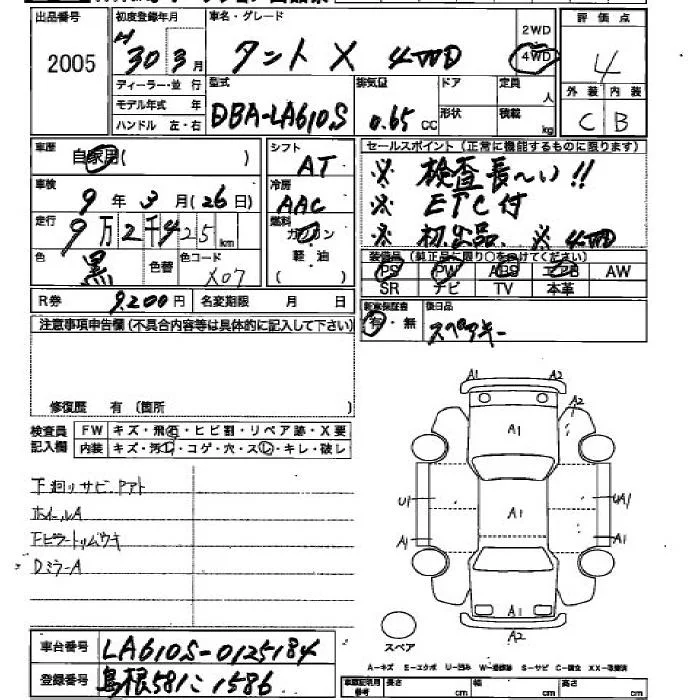 出品番号 初度登録年月 車名・グレード 評価点
2005 H 30 3 月 タント X 4WD 2WD 4WD 4
ディーラー・並行 型式 排気量 ドア 定員 人 外装 内装
モデル年式 年 DBA-LA610S 0.65 CC 形状 積載 kg C B
ハンドル 左・右
車歴 自家用( ) シフト AT セールスポイント(正常に機能するものに限ります)
車検 9 年 3 月(26 日) 冷房 AAC ※ 検査長〜い!!
※ ETC付
走行 9万2千425 km 燃料 ガソリン 軽・油 ※ 初出品 ※ 4WD
色 黒 色替 色コード X07 装備品(純正品に限り○をつけてください)
PS PW ABS エアB AW
SR ナビ TV 本革
R券 9,200円 名変期限 月 日 新車保証書 後日品
有・無 スペアキー
注意事項申告欄(不具合内容等は具体的に記入して下さい)
修復歴 有 (箇所 )
検査員 FW キズ・飛石・ヒビ割・リペア跡・X要
記入欄 内装 キズ・汚レ・コゲ・穴・スレ・キレ・破レ
下廻りサビ アト
ホイールA
Fピラートリムウキ
DミラーA
A1 A2
A2
A1
U1 A1 UA1
A1 A1
A1
A2
スペア
車台番号 LA610S-0125184
登録番号 島根581こ1586
A-キズ E-エクボ U-凹み W-補修跡 S-サビ C-腐食 XX-取替済
長さ cm 幅 cm 高さ cm